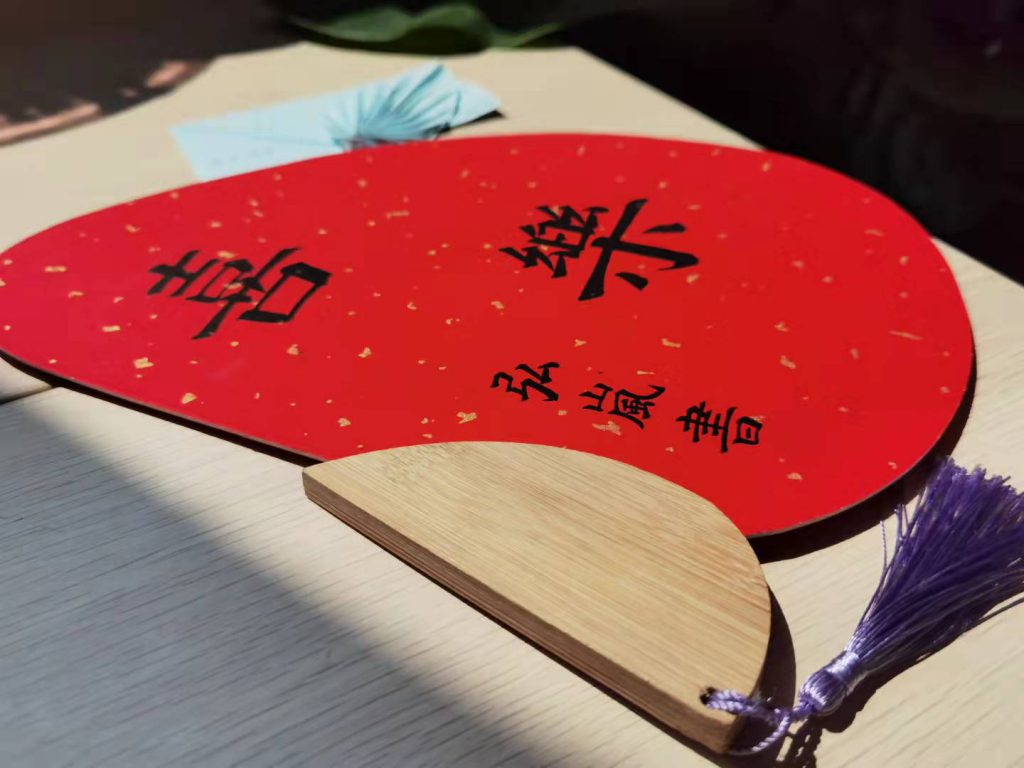 喜樂
弘嵐書